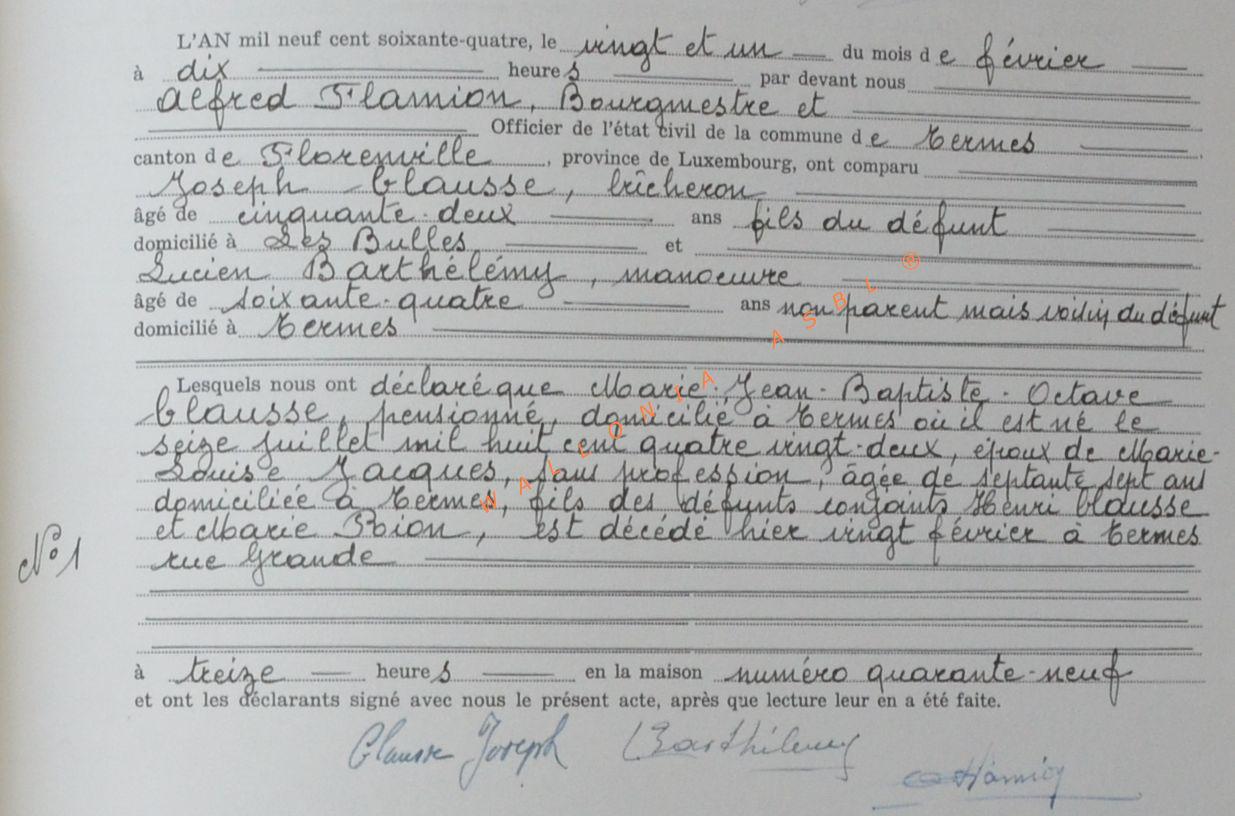 L'AN mil neuf cent soixante-quatre, le vingt et un du mois de février
à dix heures par devant nous
Alfred Flamion, Bourgmestre et
Officier de l'état civil de la commune de Termes
canton de Florenville, province de Luxembourg, ont comparu
Joseph Clausse, bûcheron
âgé de cinquante-deux ans fils du défunt
domicilié à Les Bulles et
Lucien Barthélémy, manoeuvre
âgé de soixante-quatre ans non parent mais voisin du défunt
domicilié à Termes
Lesquels nous ont déclaré que Marie-Jean-Baptiste-Octave
Clausse, pensionné, domicilié à Termes où il est né le
seize juillet mil huit cent quatre vingt-deux, époux de Marie-
Louise Jacques, sans profession, âgée de septante sept ans
domiciliée à Termes, fils des défunts conjoints Henri Clausse
et Marie Pion, est décédé hier vingt février à Termes
N° 1
rue Grande
à treize heures en la maison numéro quarante-neuf
et ont les déclarants signé avec nous le présent acte, après que lecture leur en a été faite.
Clausse Joseph Barthélemy
WALLONIA ASBL ®